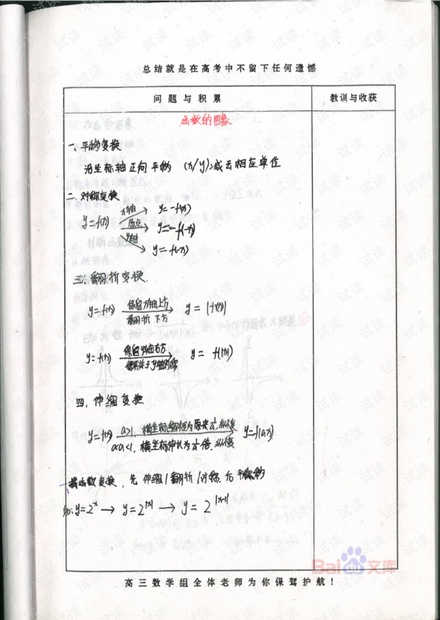 总结就是在高考中不留下任何遗憾
问题与积累 教训与收获
函数的图象
一、平移变换
沿坐标轴正向平移 (x/y)减去相应单位
二、对称变换
y=f(x) x轴 → y=-f(x)
原点 → y=-f(-x)
y轴 → y=f(-x)
三、翻折变换.
y=f(x) 保留x轴上方 翻折下方 → y=|f(x)|
y=f(x) 保留y轴右方 → y=f(|x|)
四、伸缩变换
y=f(x) a>1, 横坐标缩短为原来 → y=f(ax)
0<a<1, 横坐标伸长为
函数变换, 先伸缩/翻折/对称, 后平移
如: y=2^x → y=2^|x| → y=2^|x-1|
高三数学组全体老师为你保驾护航!
Bai 文库